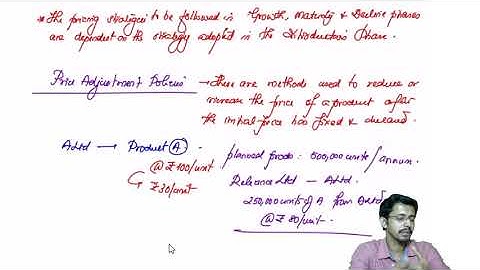 * The pricing strategies to be followed in Growth, Maturity & Decline phases
are dependent on the strategy adopted in the Introduction Phase.
Price Adjustment Policies → These are methods used to reduce or
increase the price of a product after
the initial price has fixed & demand.
A Ltd → Product A
@ ₹100/unit
₹30/unit
planned prodn: 500,000 units/annum.
Reliance Ltd – A Ltd.
250,000 units of A from A Ltd
@ ₹80/unit.